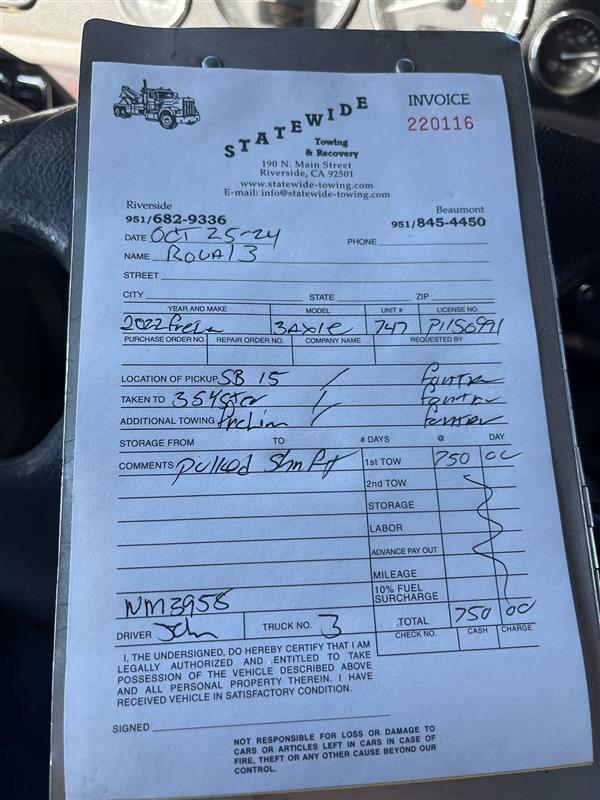 INVOICE
220116
STATEWIDE
Towing
& Recovery
190 N. Main Street
Riverside, CA 92501
www.statewide-towing.com
E-mail: info@statewide-towing.com
Riverside
951/682-9336
Beaumont
951/845-4450
DATE OCT 25-24
PHONE
NAME
STREET
CITY STATE ZIP
YEAR AND MAKE MODEL UNIT # LICENSE NO.
2022 3 Axle 747
PURCHASE ORDER NO. REPAIR ORDER NO. COMPANY NAME REQUESTED BY
LOCATION OF PICKUP SB 15 /
TAKEN TO /
ADDITIONAL TOWING /
STORAGE FROM TO # DAYS @ DAY
COMMENTS pulled 1st TOW 750 00
2nd TOW
STORAGE
LABOR
ADVANCE PAY OUT
MILEAGE
10% FUEL
SURCHARGE
NM3958
DRIVER John TRUCK NO. 3 TOTAL 750 00
CHECK NO. CASH CHARGE
I, THE UNDERSIGNED, DO HEREBY CERTIFY THAT I AM
LEGALLY AUTHORIZED AND ENTITLED TO TAKE
POSSESSION OF THE VEHICLE DESCRIBED ABOVE
AND ALL PERSONAL PROPERTY THEREIN. I HAVE
RECEIVED VEHICLE IN SATISFACTORY CONDITION.
SIGNED
NOT RESPONSIBLE FOR LOSS OR DAMAGE TO
CARS OR ARTICLES LEFT IN CARS IN CASE OF
FIRE, THEFT OR ANY OTHER CAUSE BEYOND OUR
CONTROL.